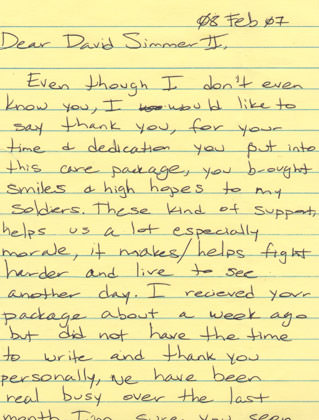 08 Feb 07
Dear David Simmer II,
Even though I don't even
know you, I would like to
say thank you, for your
time & dedication you put into
this care package, you brought
smiles & high hopes to my
soldiers. These kind of support,
helps us a lot especially
morale, it makes/helps fight
harder and live to see
another day. I recieved your
package about a week ago
but did not have the time
to write and thank you
personally, we have been
real busy over the last
month I'm sure you seen